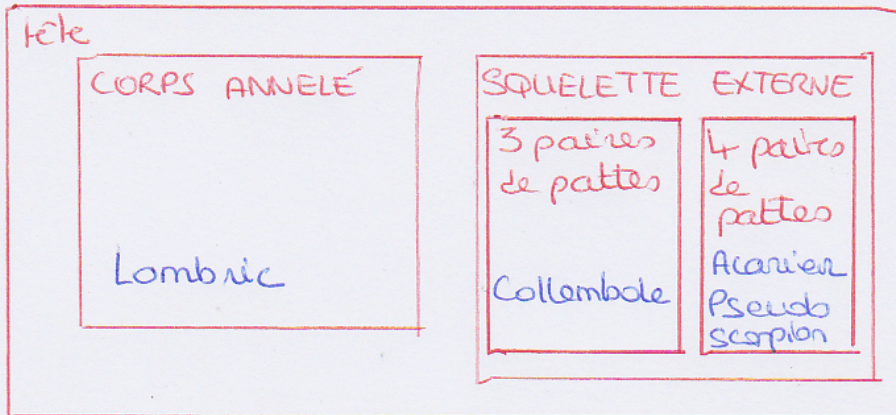 tête
CORPS ANNELÉ
Lombric
SQUELETTE EXTERNE
3 paires
de pattes
Collembole
4 paires
de
pattes
Acarien
Pseudo
scorpion